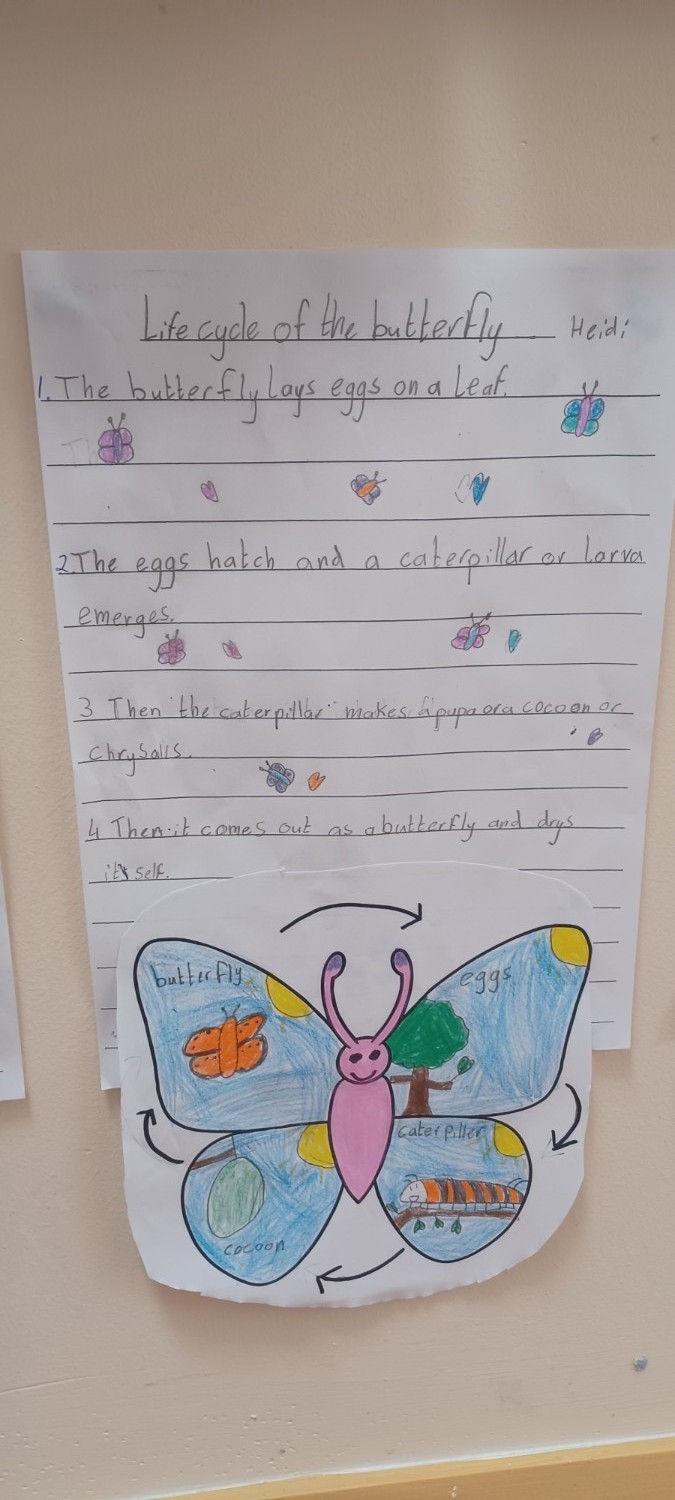 Life cycle of the butterfly Heidi
1. The butterfly lays eggs on a leaf.
Th
2. The eggs hatch and a caterpillar or larva
emerges.
3 Then the caterpillar makes a pupa or a cocoon or
chrysalis.
4 Then it comes out as a butterfly and drys
it self.
butterfly
eggs
caterpiller
cocoon